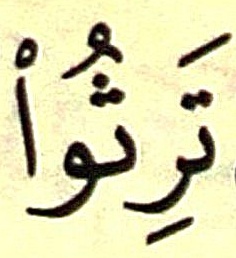 تَرِثُواْ